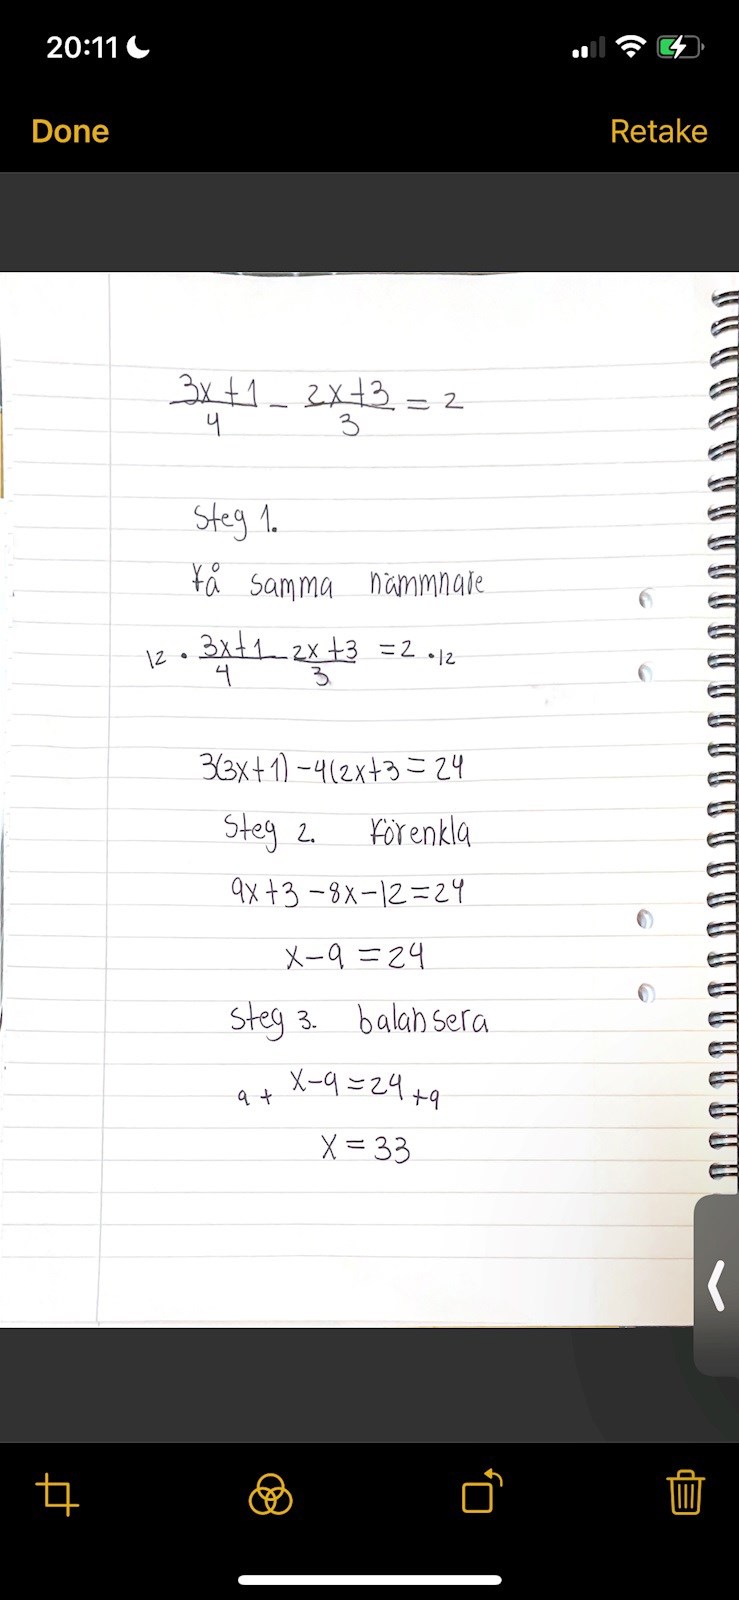 20:11
Done Retake
3x+1/4 - 2x+3/3 = 2
Steg 1.
Få samma nämmnare
12 · 3x+1/4 - 2x+3/3 = 2 · 12
3(3x+1)-4(2x+3=24
Steg 2. Förenkla
9x+3-8x-12=24
x-9=24
Steg 3. balansera
9+ x-9=24+9
x=33